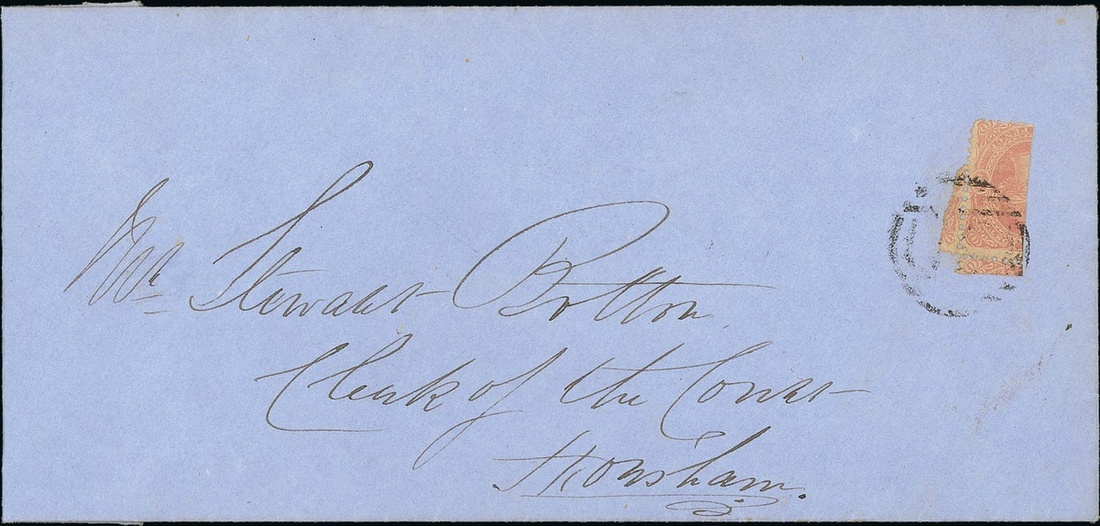 Mr Stewart Bolton
Clerk of the Court
Horsham.